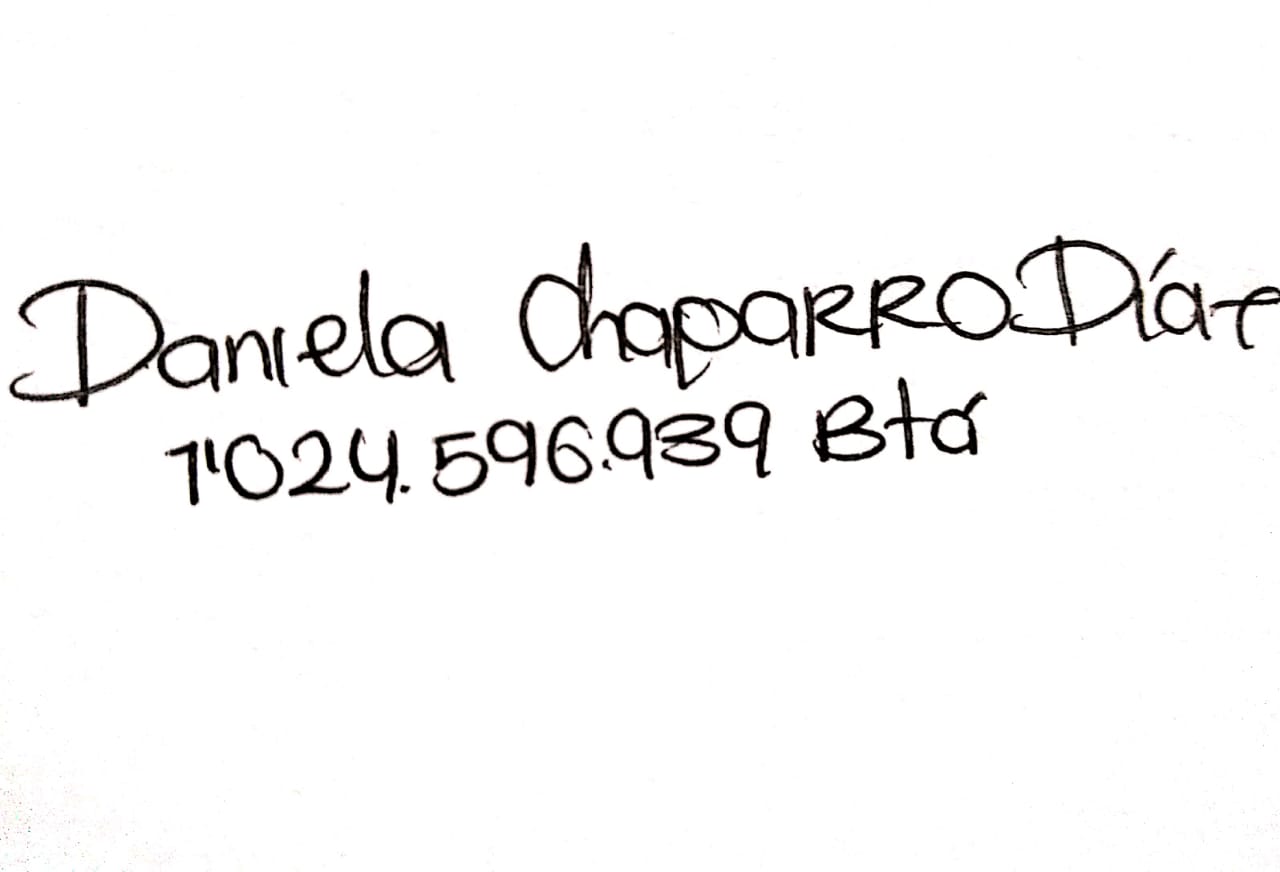 Daniela Chaparro Díaz
1'024.596.939 Btá